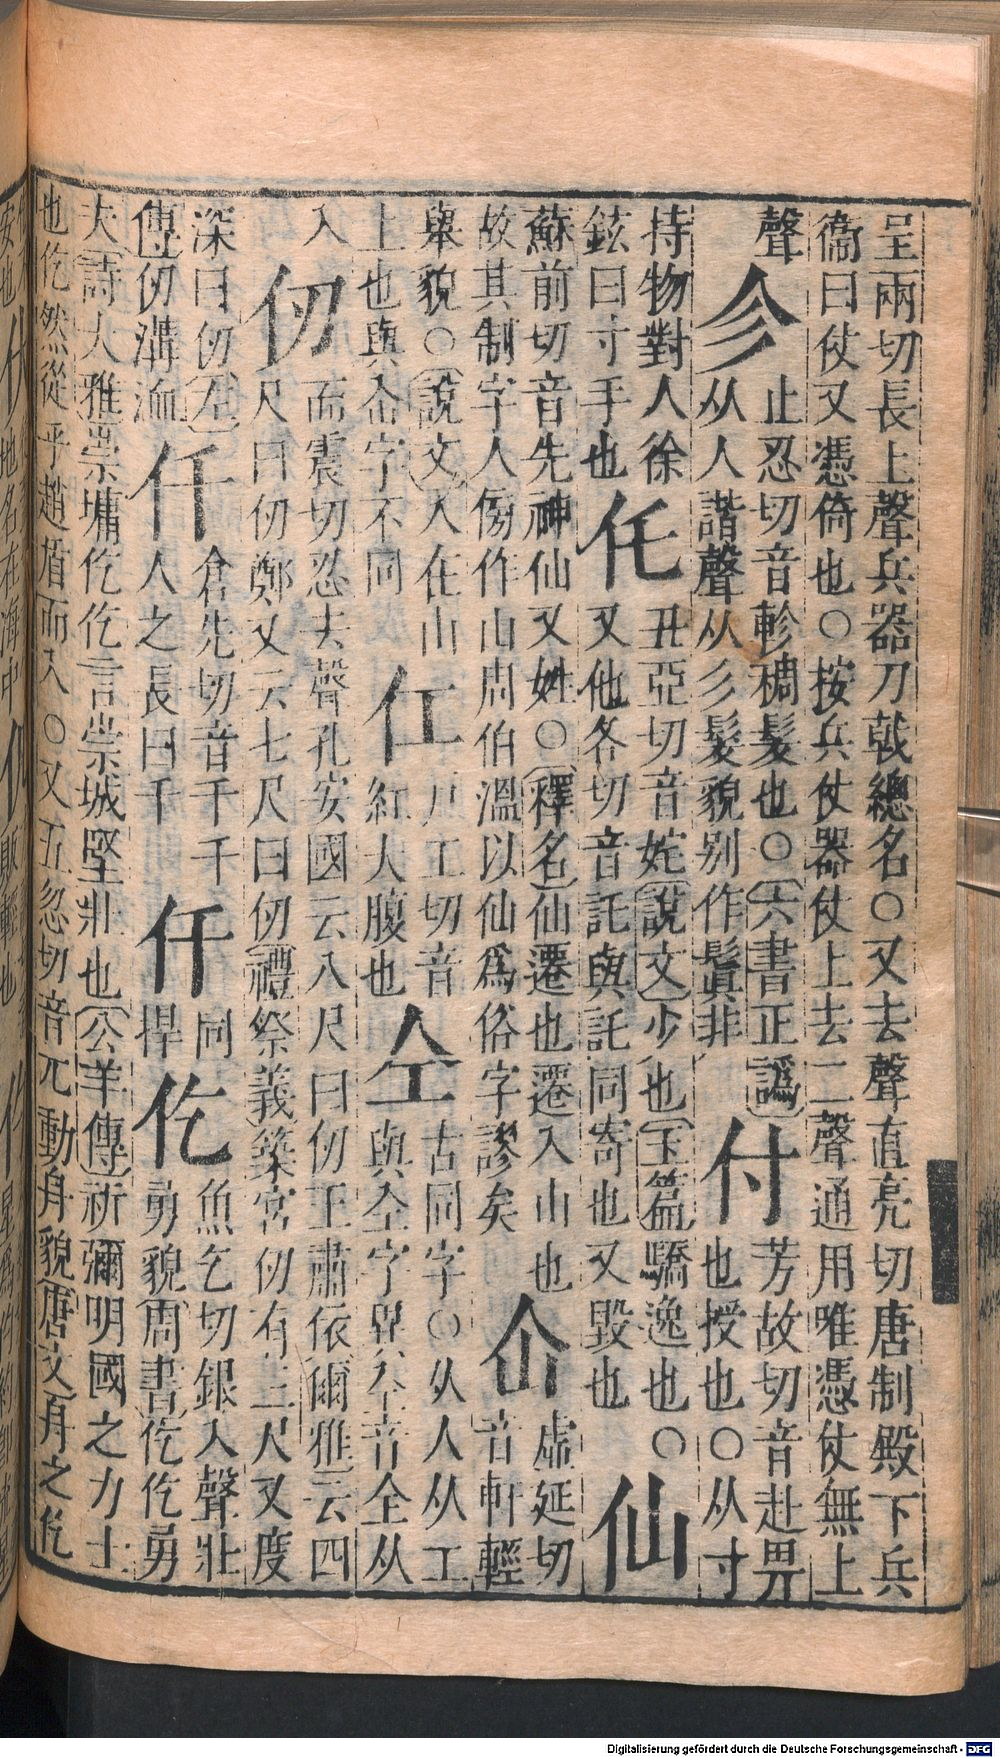 呈兩切長上聲兵器刀戟總名○又去聲直亮切唐制殿下兵
衞曰仗又憑倚也○按兵仗器仗上去二聲通用唯憑仗無上
聲
㐱
止忍切音軫稠髮也○六書正譌
从人諧聲从彡髮貌别作鬒非
付
芳故切音赴畀
也授也○从寸
持物對人徐
鉉曰寸手也
仛
丑亞切音姹說文少也玉篇驕逸也○
又他各切音託與託同寄也又毀也
仙
蘇前切音先神仙又姓○釋名仙遷也遷入山也
故其制字人傍作山周伯溫以仙爲俗字謬矣
仚
虛延切
音軒輕
舉貌○說文人在山
上也與字不同
仜
戸工切音
紅大腹也
仝
古同字○从人从工
與仝字異仝音全从
入
仞
而震切忍去聲孔安國云八尺曰仞王肅依爾雅云四
尺曰仞鄭又云七尺曰仞禮祭義築宮仞有三尺又度
深曰仞左
傳仞溝洫
仟
倉先切音千千
人之長曰千
仠
同
捍
仡
魚乞切銀入聲壯
勇貌周書仡仡勇
夫詩大雅崇墉仡仡言崇城堅壯也公羊傳祈彌明國之力士
也仡然從乎趙盾而入○又五忽切音兀動舟貌唐文舟之仡
Digitalisierung gefördert durch die Deutsche Forschungsgemeinschaft - DFG